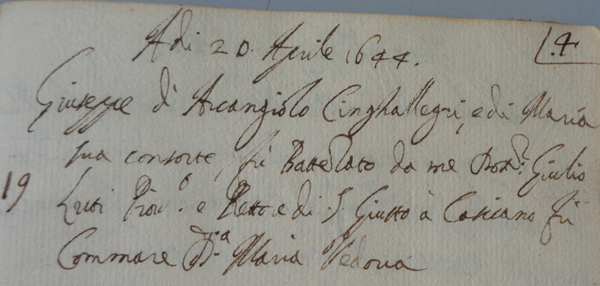 Adi 20. Aprile 1644.
4
Giuseppe di Arcangiolo Cinghallegri, e di Maria
sua consorte, fù Battezato da me Dott.r Giulio
19
Luti Piov.o e Rettore di S. Giusto à Casciano fù
Commare D.a Maria Vedova